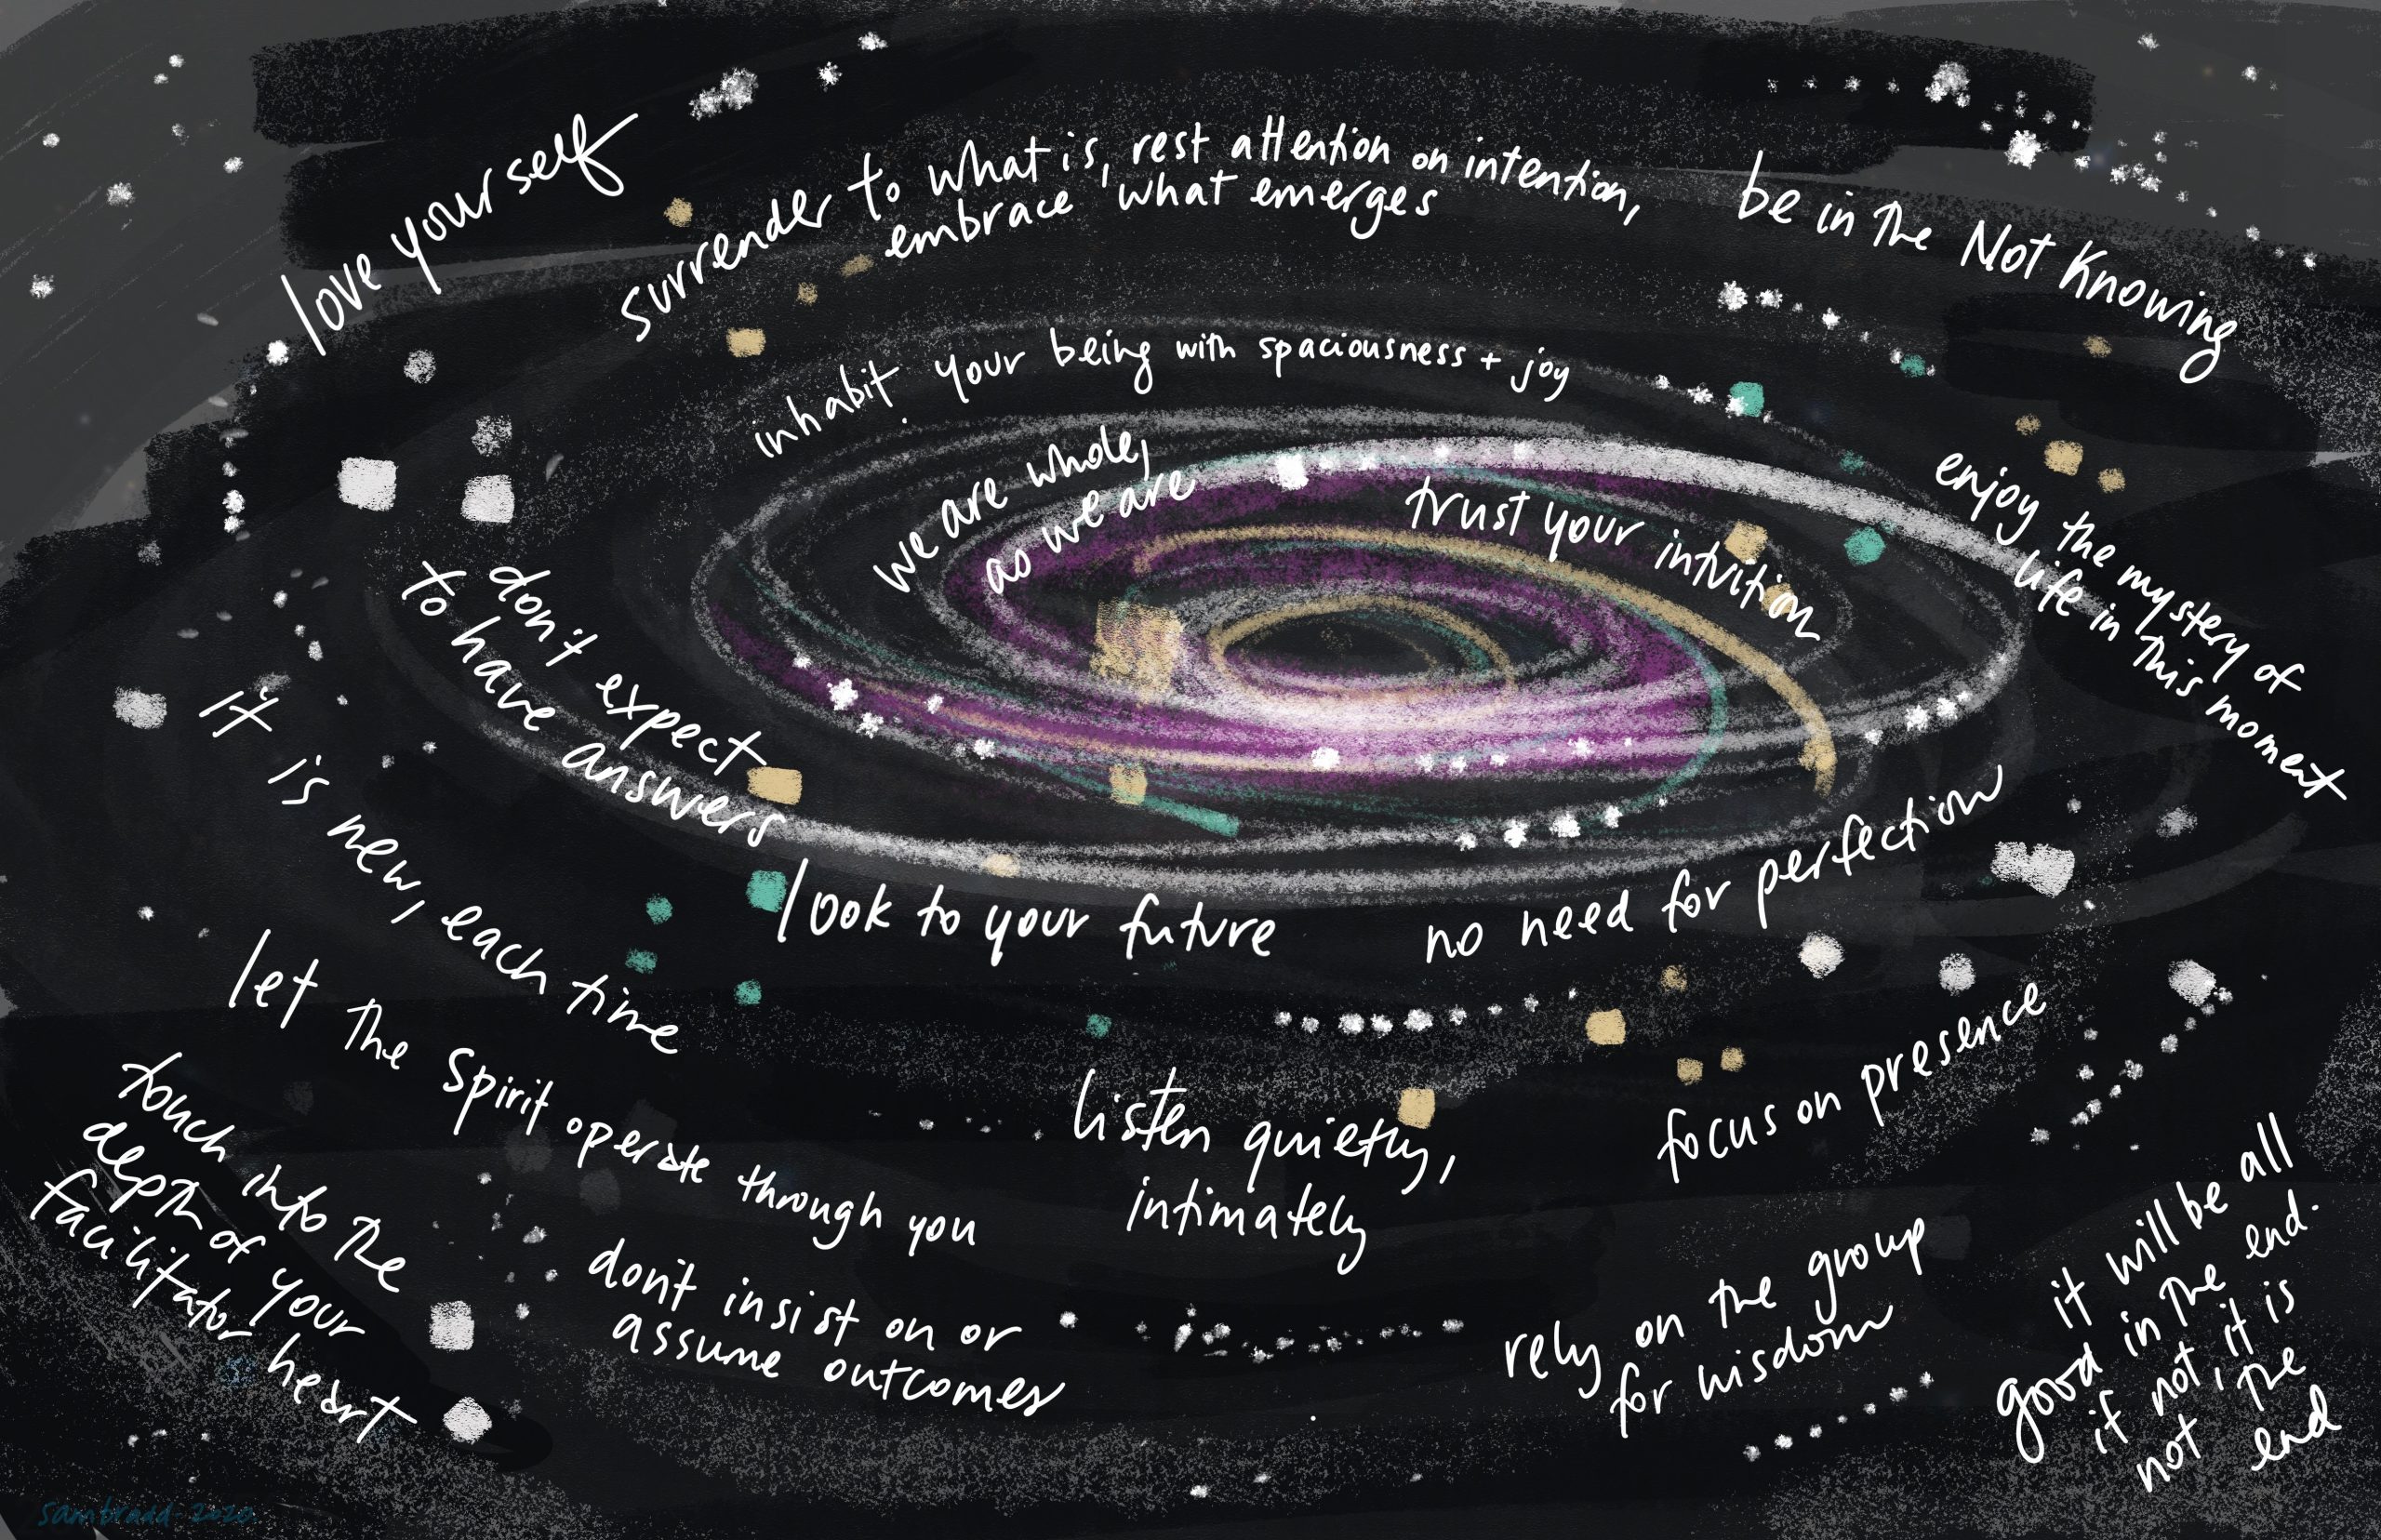 love yourself
surrender to what is, rest attention on intention,
embrace what emerges
be in the Not Knowing
inhabit your being with spaciousness + joy
we are whole,
as we are
trust your intuition
enjoy the mystery of
life in this moment
don't expect
to have answers
it is new, each time
look to your future
no need for perfection
let the Spirit operate through you
listen quietly,
intimately
focus on presence
touch into the
depth of your
facilitator heart
don't insist on or
assume outcomes
rely on the group
for wisdom
it will be all
good in the end.
if not, it is
not the
end
sambradd - 2020